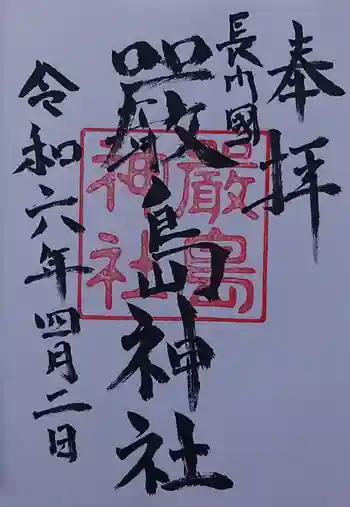 奉拝
長門國
嚴島神社
嚴島
神社
令和六年四月二日